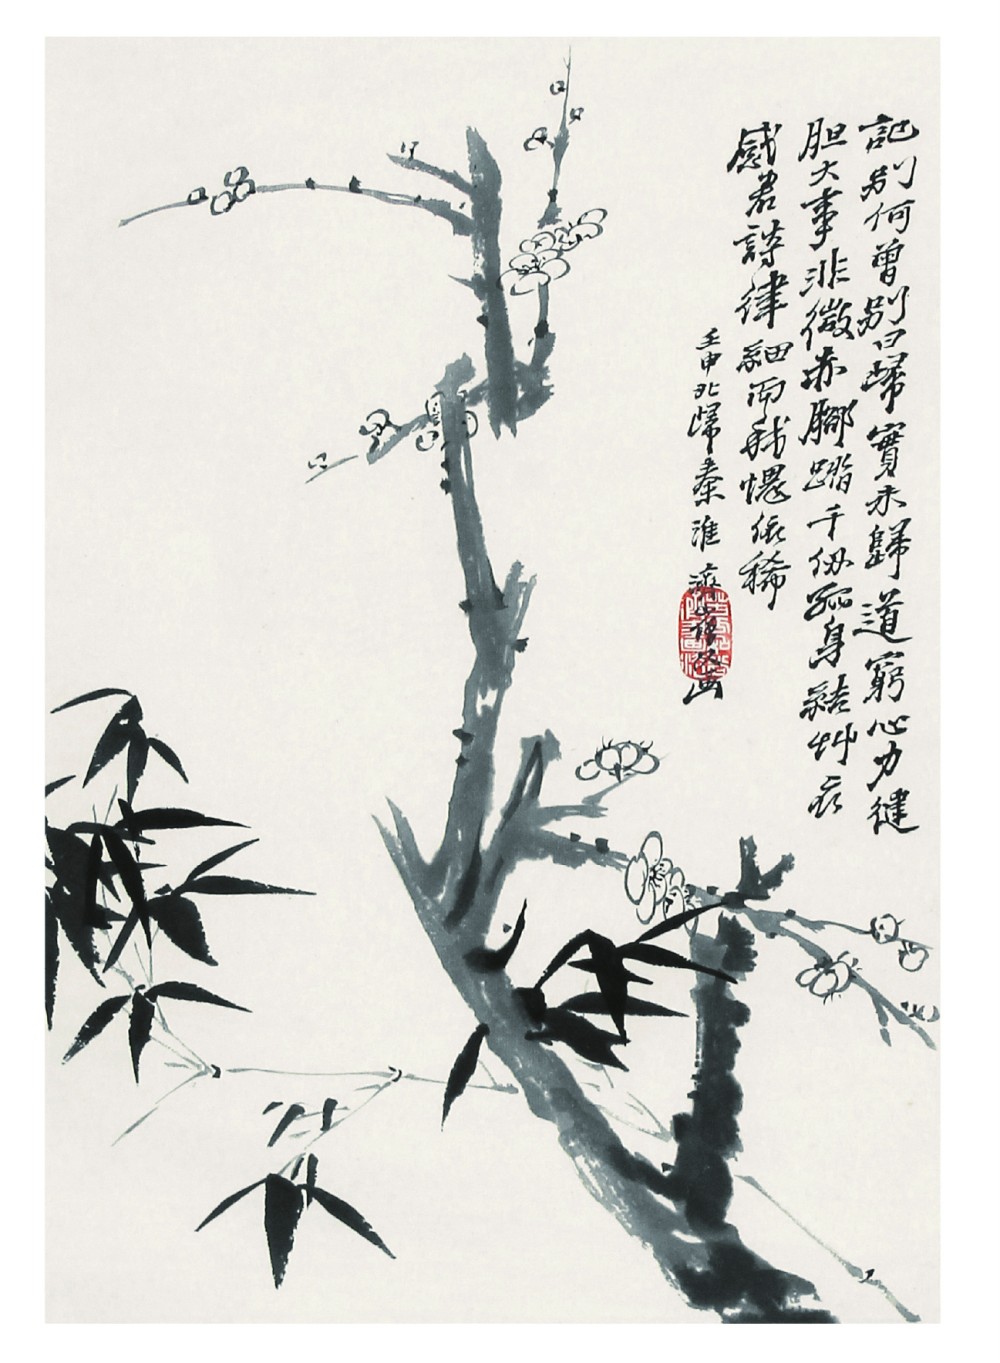 記別何曾別曰歸實未歸道窮心力健
胆大事非微赤腳踏千仞孤身結艸衣
感君詩律細而我愧依稀
壬申北歸秦淮濟山僧